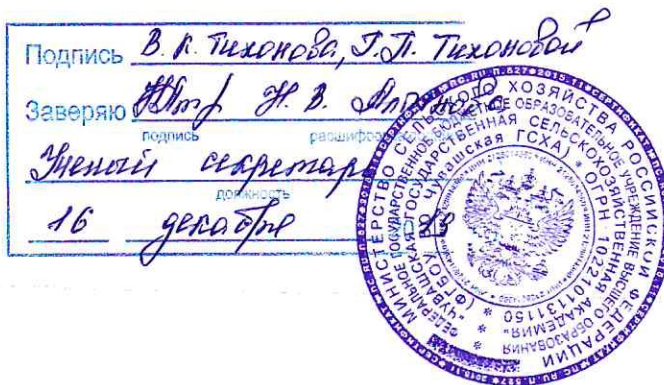 Подпись В. К. Тихонова, Т. П. Тихоновой
Заверяю Н. В.
подпись расшифровка
Ученый секретарь
должность
16 декабря
МИНИСТЕРСТВО СЕЛЬСКОГО ХОЗЯЙСТВА РОССИЙСКОЙ ФЕДЕРАЦИИ
ФЕДЕРАЛЬНОЕ ГОСУДАРСТВЕННОЕ БЮДЖЕТНОЕ ОБРАЗОВАТЕЛЬНОЕ УЧРЕЖДЕНИЕ ВЫСШЕГО ОБРАЗОВАНИЯ
"ЧУВАШСКАЯ ГОСУДАРСТВЕННАЯ СЕЛЬСКОХОЗЯЙСТВЕННАЯ АКАДЕМИЯ"
(ФГБОУ ВО Чувашская ГСХА) * ОГРН 1022101131150 *